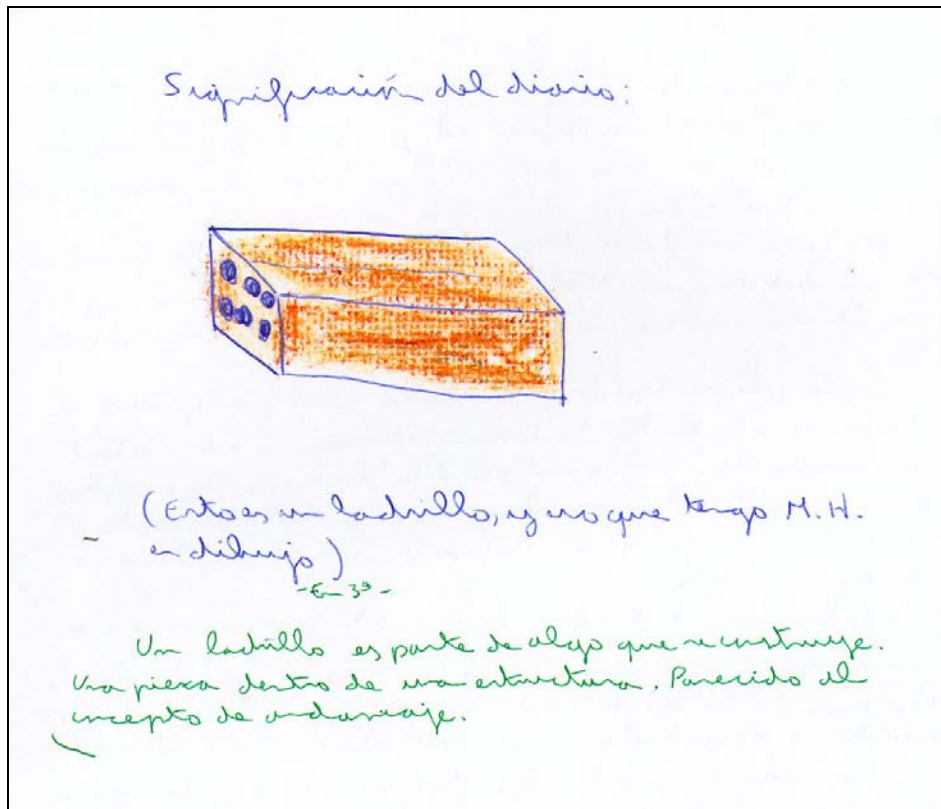 Significación del diario:
(Esto es un ladrillo, y eso que tengo M.H.
en dibujo)
-En 3º-
Un ladrillo es parte de algo que se construye.
Una pieza dentro de una estructura. Parecido al
concepto de andamiaje.